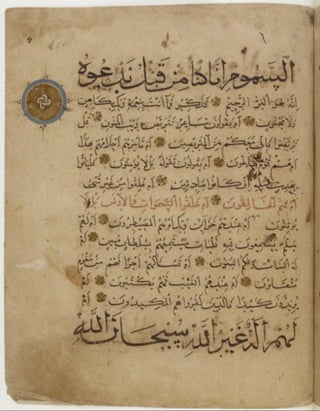 السموم انا كنا من قبل ندعوه
انه هو البر الرحيم فذكر فما انت بنعمة ربك بكاهن
ولا مجنون ام يقولون شاعر نتربص به ريب المنون قل
تربصوا فاني معكم من المتربصين ام تامرهم احلامهم بهذا
ام هم قوم طاغون ام يقولون تقوله بل لا يومنون فلياتوا
بحديث مثله ان كانوا صادقين ام خلقوا من غير شي
ام هم الخالقون ام خلقوا السموات والارض بل لا
يوقنون ام عندهم خزاين ربك ام هم المصيطرون ام لهم
سلم يستمعون فيه فليات مستمعهم بسلطان مبين ام
له البنات ولكم البنون ام تسالهم اجرا فهم من مغرم
مثقلون ام عندهم الغيب فهم يكتبون ام
يريدون كيدا فالذين كفروا هم المكيدون ام
لهم اله غير الله سبحان الله